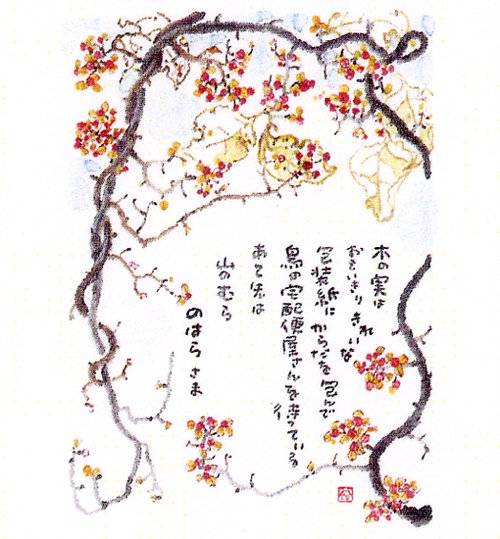 木の実は
おもいきり きれいな
包装紙に からだを 包んで
鳥の宅配便屋さんを待っている
あて先は
山のむら
のはらさま